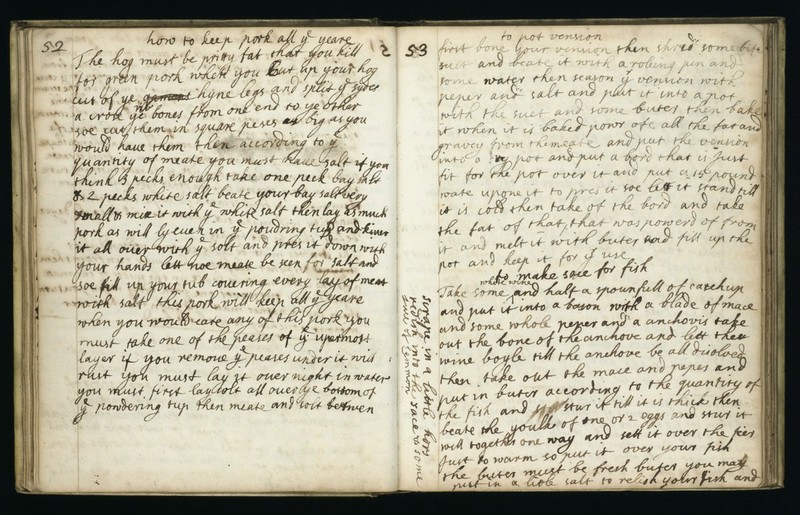 52
how to keep pork all yᵉ yeare
The hog must be pritty fat that you kill
for green pork whilst you Cut up your hog
cut of ye hgne legs and split yᵉ sydes
a cross yᵉ bones from one end to ye other
soe cut them in square peses as big as you
would have them then according to yᵉ
quantity of meate you must have salt if you
think 3 pecks enough take one peck bay salt
& 2 pecks white salt beate your bay salt very
small & mix it with yᵉ white salt then lay as much
pork as will ly euen in yᵉ poudring tup and kiver
it all over with yᵉ salt and pres it down with
your hands lett noe meate be seen for salt and
soe fill up your tub couering every lay of meat
with salt this pork will keep all yᵉ yeare
when you would eate any of this pork you
must take one of the peases of yᵉ upermost
layer if you remove yᵉ peases under it will
rust you must lay it over night in water
you must first lay solt all over ye bottom of
yᵉ powndering tup then meate and solt betwen
2 53
to pot venison
first bone your venison then shred some bife
suit and beate it with a roleing pin and
some water then season yᵉ venison with
peper and salt and put it into a pot
with the suet and some buter then bake
it when it is baked powr ofe all the fat and
gravey from the meate and put the venison
into a pot and put a bord that is Just
fit for the pot over it and put a pound
wate upone it to pres it soe lett it stand till
it is cold then take of the bord and take
the fat of that, that was powerd of from
it and melt it with buter and fill up the
pot and keep it for yᵉ use
to make sace for fish
white wine
Take some and half a spounfull of catchup
and put it into a bason with a blade of mace
and some whole peper and a anchovis take
out the bone of the anchove and lett the
wine boyle till the anchove be all disolved
then take out the mace and peper and
put in buter according to the quantity of
the fish and stur it till it is thick then
beate the youlk of one or 2 eggs and stur it
well together one way and sett it over the fier
Just to warm so put it over your fish
the buter must be fresh buter you may
put in a litle salt to relish your fish and
scrape in a little hors
redish into the sace & some